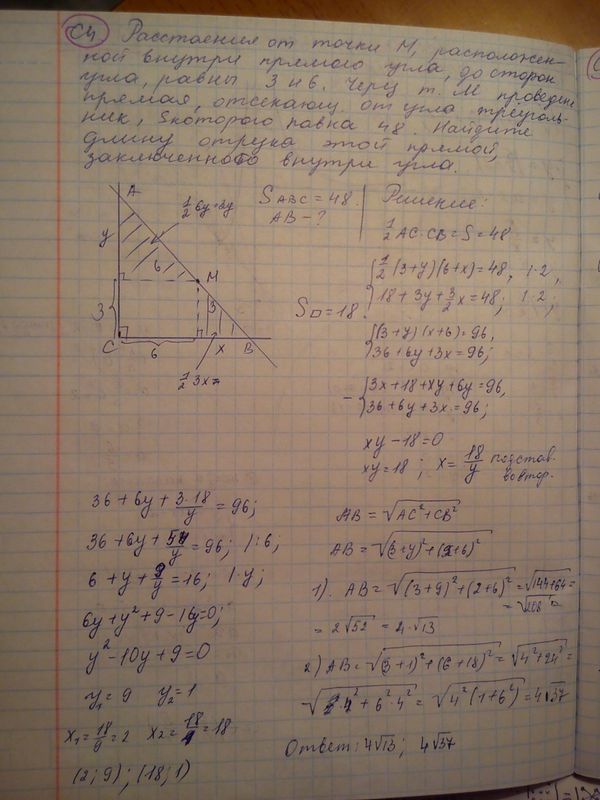 С4 Расстояния от точки М, расположен-
ной внутри прямого угла, до сторон
угла, равны 3 и 6. Через т. М проведена
прямая, отсекающ. от угла треуголь-
ник, S которого равна 48. Найдите
длину отрезка этой прямой,
заключенного внутри угла.
A
1/2 6y=3y
y
6
M
3
3
C
6
x
B
1/2 3x=
S ABC = 48.
AB - ?
S□ = 18.
Решение:
1/2 AC·CB = S = 48
{1/2 (3+y)(6+x) = 48, |·2,
18 + 3y + 3/2 x = 48; |·2;
{(3+y)(x+6) = 96,
36+6y+3x = 96;
- {3x+18+xy+6y = 96,
36+6y+3x = 96;
xy - 18 = 0
xy = 18; x = 18/y подстав.
во втор.
36 + 6y + 3·18/y = 96;
36 + 6y + 54/y = 96; |:6;
6 + y + 9/y = 16; |·y;
6y + y² + 9 - 16y = 0;
y² - 10y + 9 = 0
y₁ = 9 y₂ = 1
x₁ = 18/9 = 2 x₂ = 18/1 = 18
(2; 9); (18; 1)
AB = √(AC² + CB²)
AB = √((3+y)² + (x+6)²)
1). AB = √((3+9)² + (2+6)²) = √(144+64) =
= √208 =
= 2√52 = 4√13
2) AB = √((3+1)² + (6+18)²) = √(4² + 24²) =
√(4² + 6²·4²) = √(4²(1+6²)) = 4√37
Ответ: 4√13; 4√37